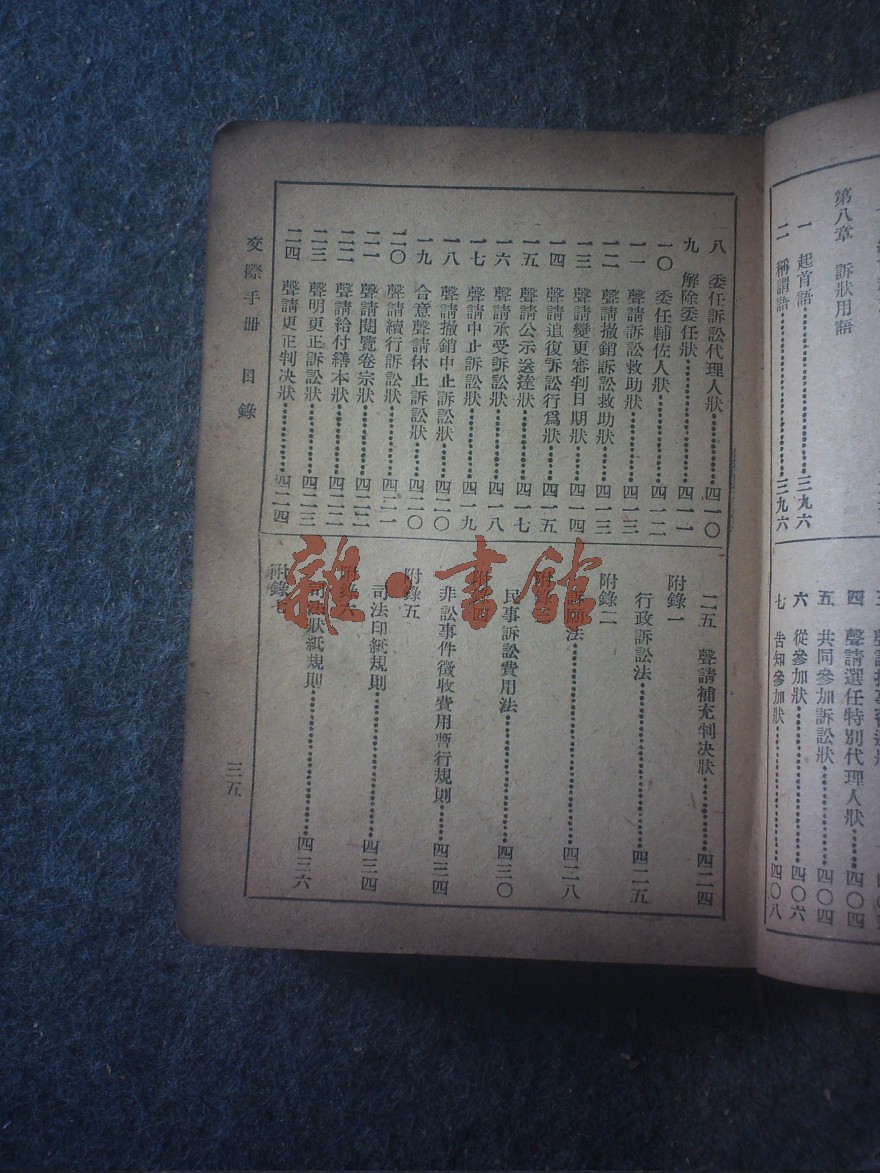 第八章　訴狀用語
一　起首語……三九六
二　稱謂語……三九六
四　聲請選任特別代理人狀……四〇四
五　共同參加訴訟狀……四〇四
六　從參加狀……四〇六
七　告知參加狀……四〇八
八　委任訴訟代理人狀……四一〇
九　解除委任狀……四一一
一〇　委任輔佐人狀……四一二
一一　聲請訴訟救助狀……四一三
一二　聲請撤銷訴訟救助狀……四一三
一三　聲請變更審判日期狀……四一四
一四　聲請追復訴訟行爲狀……四一五
一五　聲請公示送達狀……四一七
一六　聲請承受訴訟狀……四一八
一七　聲請中止訴訟狀……四一九
一八　聲請撤銷中止訴訟狀……四二〇
一九　合意聲請休止訴訟狀……四二〇
二〇　聲請續行訴訟狀……四二一
二一　聲請閱覽卷宗狀……四二二
二二　聲請給付繕本狀……四二二
二三　聲明更正訴訟狀……四二三
二四　聲請更正判決狀……四二四
二五　聲請補充判決狀……四二四
附錄一
行政訴訟法……四二五
附錄二
訴願法……四二八
附錄三
民事訴訟費用法……四三〇
附錄四
非訟事件徵收費用暫行規則……四三四
附錄五
司法印紙規則……四三四
附錄六
司法狀紙規則……四三六
附錄七
交際手册　目錄
三五
雜·書館